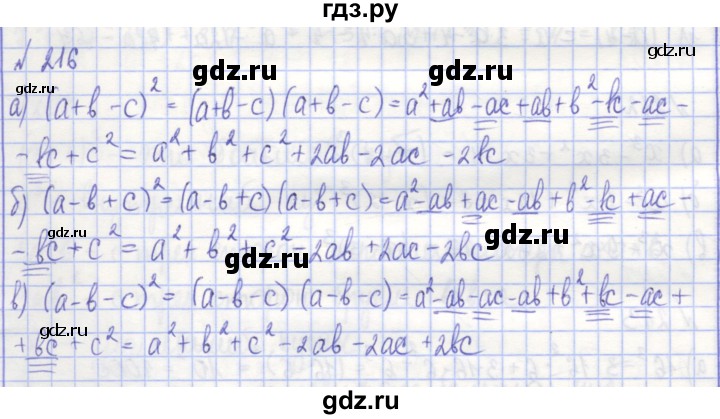 гдз.ру
N 216
gdz.ru gdz.ru
а) (a+b-c)² = (a+b-c)(a+b-c) = a²+ab-ac+ab+b²-bc-ac-
-bc+c² = a²+b²+c²+2ab-2ac-2bc
gdz.ru gdz.ru
б) (a-b+c)² = (a-b+c)(a-b+c) = a²-ab+ac-ab+b²-bc+ac-
-bc+c² = a²+b²+c²-2ab+2ac-2bc
gdz.ru gdz.ru
в) (a-b-c)² = (a-b-c)(a-b-c) = a²-ab-ac-ab+b²+bc-ac+
+bc+c² = a²+b²+c²-2ab-2ac+2bc
gdz.ru gdz.ru